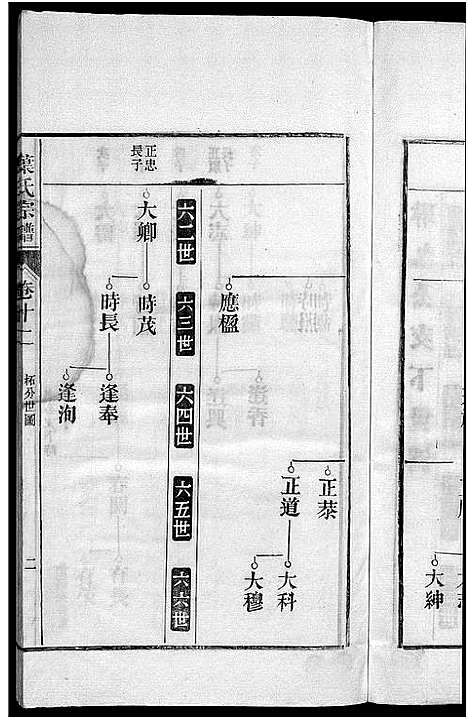 大紳
應楹
正恭
正道
大科
大穆
六二世
六三世
六四世
六五世
六六世
正忠長子
大卿
時茂
時長
逢奉
逢洵
葉氏宗譜
卷十一
柘分世圖
二